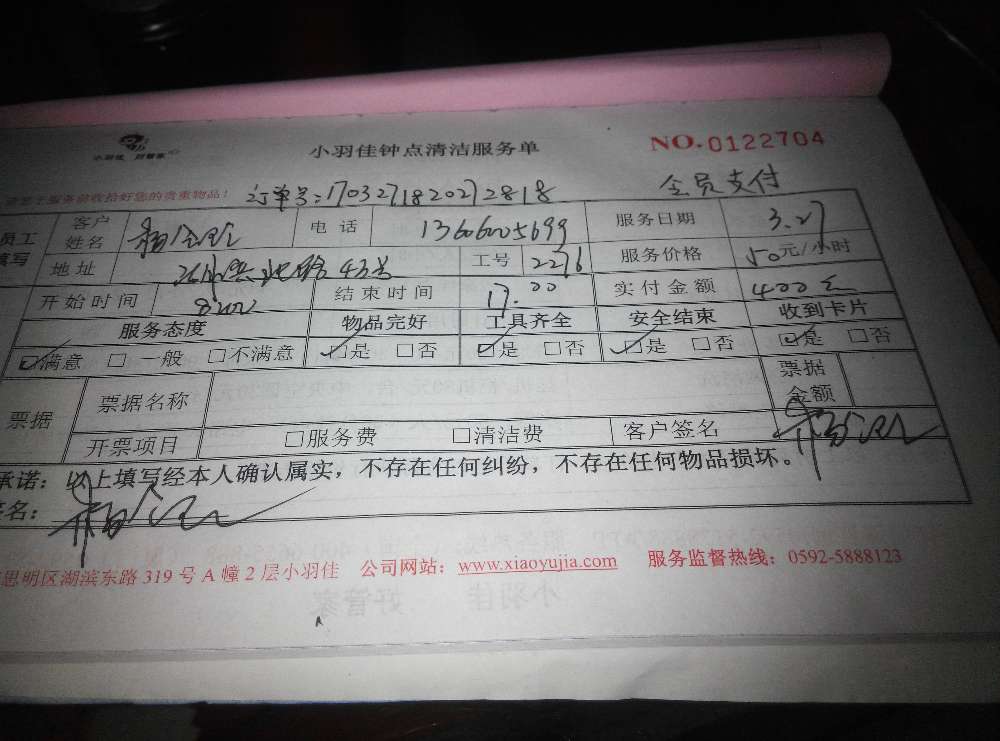 小羽佳 好管家
小羽佳钟点清洁服务单
NO.0122704
服务前收拾好您的贵重物品!
订单号:1703271820272818
会员支付
员工填写
客户姓名
电话 13606005699
服务日期 3.27
地址
43号
工号 2276
服务价格 50元/小时
开始时间
结束时间 17.00
实付金额 400元
服务态度 物品完好 工具齐全 安全结束 收到卡片
☑满意 □一般 □不满意 ☑是 □否 ☑是 □否 ☑是 □否 ☑是 □否
票据
票据名称
票据金额
开票项目 □服务费 □清洁费 客户签名
承诺:以上填写经本人确认属实,不存在任何纠纷,不存在任何物品损坏。
签名:
思明区湖滨东路 319 号 A 幢 2 层小羽佳 公司网站:www.xiaoyujia.com 服务监督热线:0592-5888123